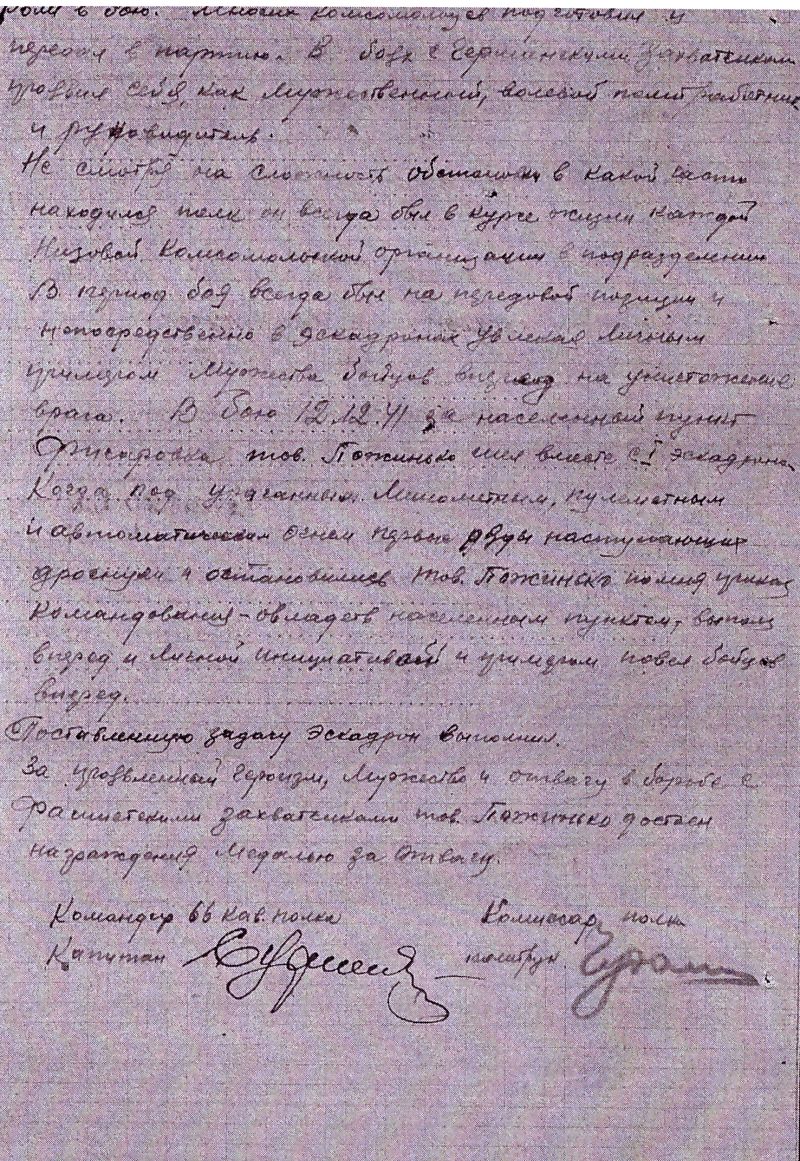 роли в бою. Многих комсомольцев подготовил и
передал в партию. В боях с германскими захватчиками
проявил себя, как мужественный, волевой политработник
и руководитель.
Не смотря на сложность обстановки в какой часто
находился полк он всегда был в курсе жизни каждой
низовой комсомольской организации в подразделении
В период боя всегда был на передовой позиции и
непосредственно в эскадронах увлекая личным
примером мужества бойцов вперед на уничтожение
врага. В бою 12.12.41 за населенный пункт
тов. Пожинько шел вместе с I эскадроном
Когда под ураганным минометным, пулеметным
и автоматическим огнем первые ряды наступающих
дрогнули и остановились тов. Пожинько помня приказ
командования - овладеть населенным пунктом,
вперед и личной инициативой и примером повел бойцов
вперед.
Поставленную задачу эскадрон выполнил.
За проявленный героизм, мужество и отвагу в борьбе с
фашистскими захватчиками тов. Пожинько достоен
награждения медалью за отвагу.
Командир 66 кав. полка Комиссар полка
Капитан политрук